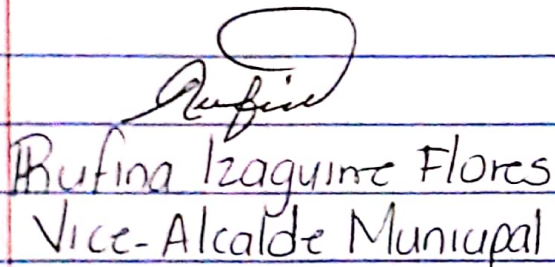 Rufina
Rufina Izaguirre Flores
Vice-Alcalde Municipal